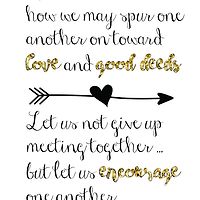 how we may spur one
another on toward
love and good deeds
Let us not give up
meeting together ...
but let us encourage
one another